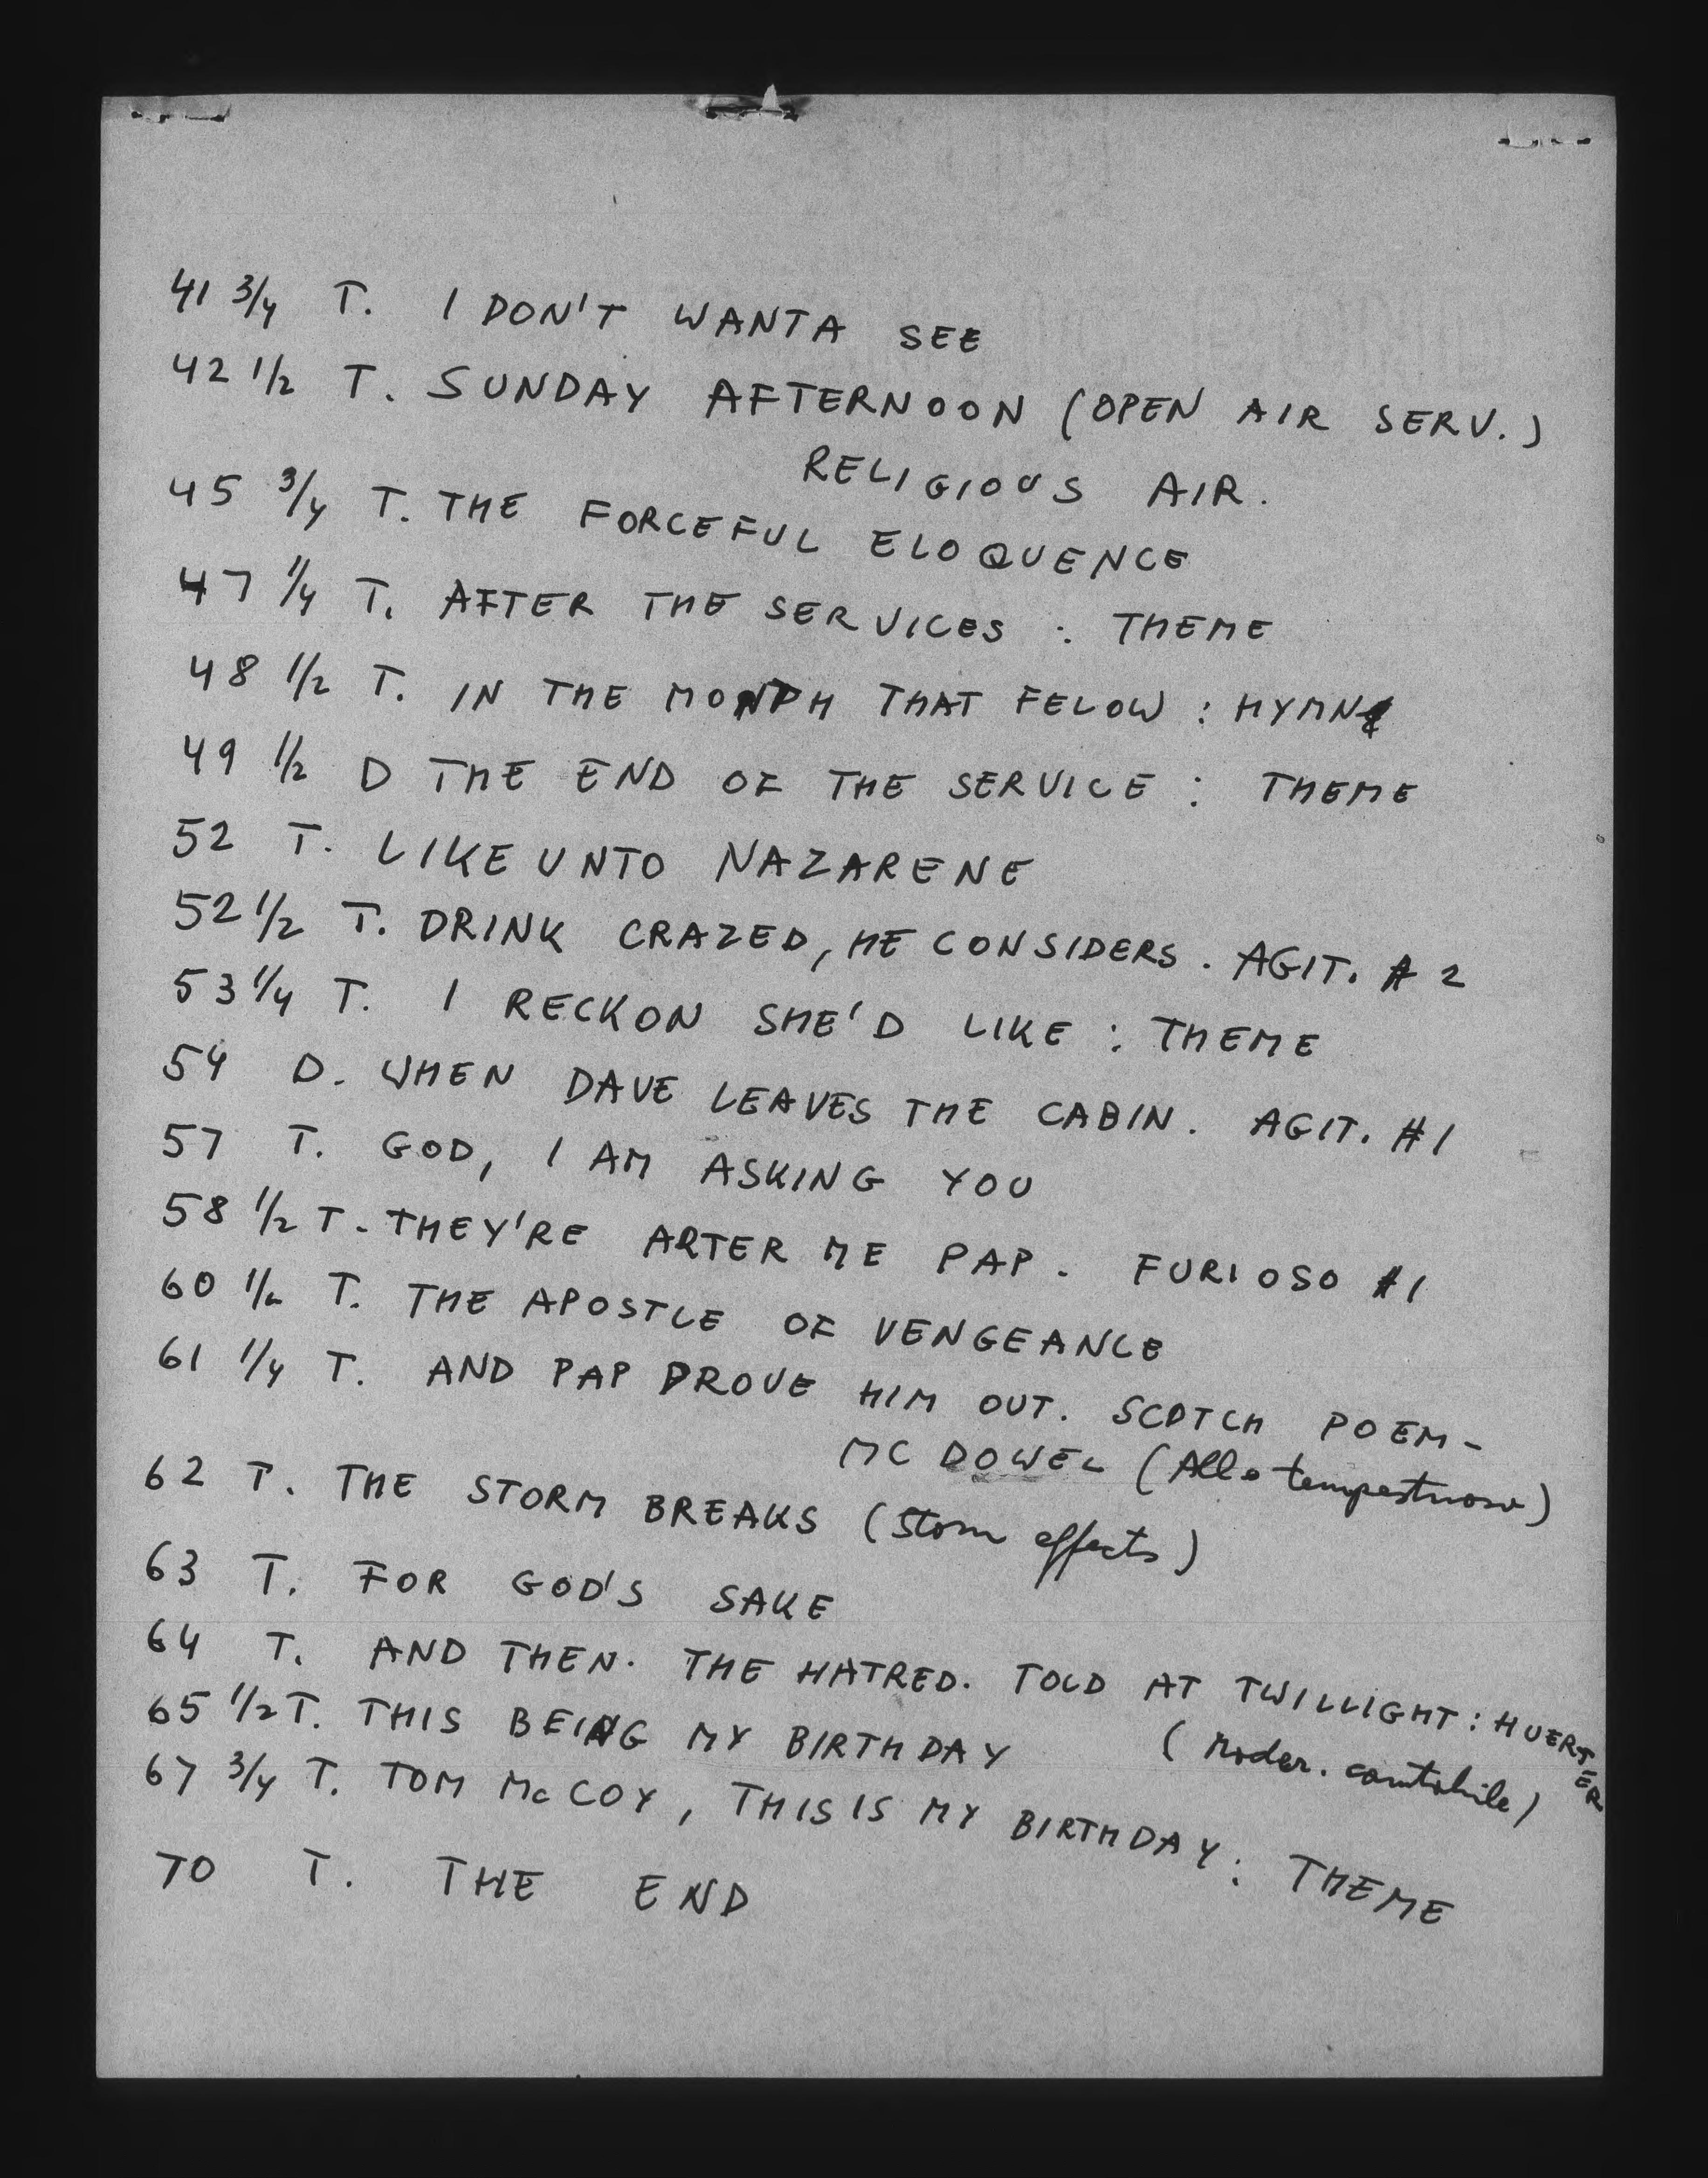 41 3/4 T. I DON'T WANTA SEE
42 1/2 T. SUNDAY AFTERNOON (OPEN AIR SERV.)
RELIGIOUS AIR.
45 3/4 T. THE FORCEFUL ELOQUENCE
47 1/4 T. AFTER THE SERVICES : THEME
48 1/2 T. IN THE MONTH THAT FELOW : HYMN
49 1/2 D THE END OF THE SERVICE : THEME
52 T. LIKE UNTO NAZARENE
52 1/2 T. DRINK CRAZED, HE CONSIDERS. AGIT. # 2
53 1/4 T. I RECKON SHE'D LIKE : THEME
54 D. WHEN DAVE LEAVES THE CABIN. AGIT. #1
57 T. GOD, I AM ASKING YOU
58 1/2 T - THEY'RE ARTER ME PAP. FURIOSO #1
60 1/2 T. THE APOSTLE OF VENGEANCE
61 1/4 T. AND PAP DROVE HIM OUT. SCOTCH POEM-
MC DOWEL (Allo tempestuoso)
62 T. THE STORM BREAKS (Storm effects)
63 T. FOR GOD'S SAKE
64 T. AND THEN. THE HATRED. TOLD AT TWILLIGHT : HUERTER
65 1/2 T. THIS BEING MY BIRTHDAY (Moder. cantabile)
67 3/4 T. TOM McCOY, THIS IS MY BIRTHDAY : THEME
70 T. THE END